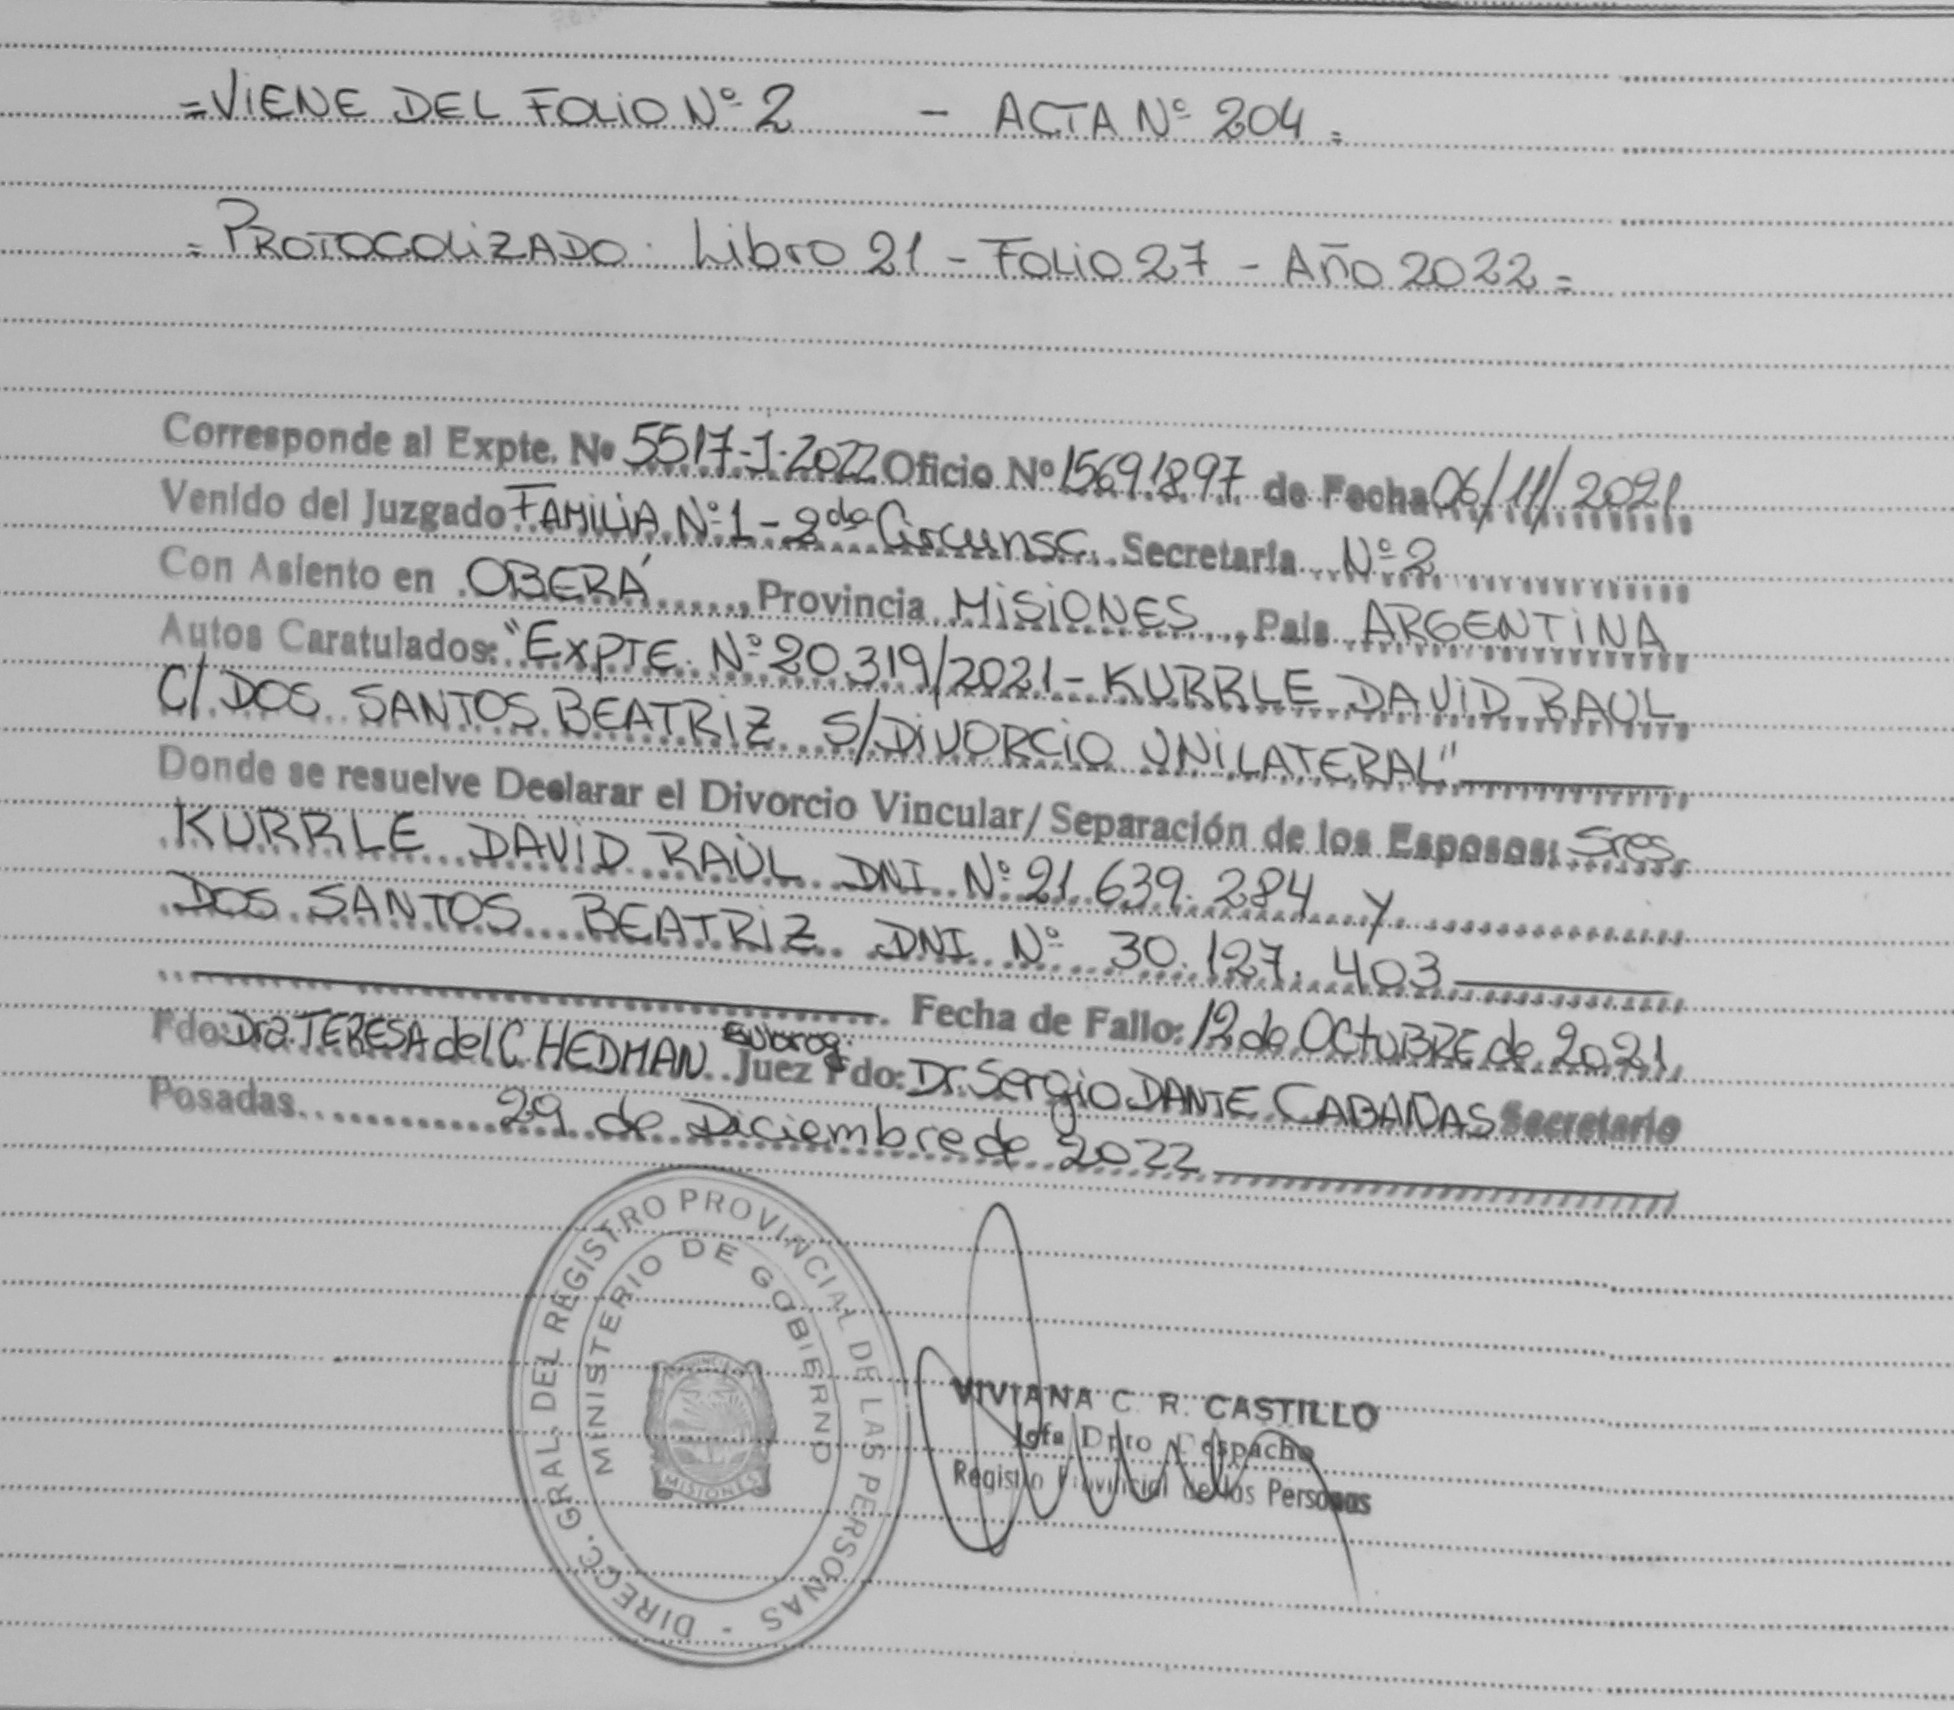 =VIENE DEL FOLIO Nº 2 - ACTA Nº 204.=
= PROTOCOLIZADO: Libro 21 - FOLIO 27 - AÑO 2022 =
Corresponde al Expte. Nº 5517-J-2022 Oficio Nº 15691897 de Fecha 06/11/2021
Venido del Juzgado FAMILIA Nº 1 - 2da Circunsc. Secretaría Nº 2
Con Asiento en OBERÁ, Provincia MISIONES, País ARGENTINA
Autos Caratulados: "EXPTE. Nº 20.319/2021 - KURRLE DAVID RAUL
C/ DOS SANTOS BEATRIZ S/DIVORCIO UNILATERAL"
Donde se resuelve Declarar el Divorcio Vincular/ Separación de los Esposos: Sres.
KURRLE DAVID RAÚL DNI Nº 21.639.284 y
DOS SANTOS BEATRIZ DNI Nº 30.127.403
Fecha de Fallo: 12 de OCTUBRE de 2021
Fdo: Dra. TERESA del C. HEDMAN Subrog. Juez Fdo: Dr. Sergio DANTE CABAÑAS Secretario
Posadas 29 de Diciembre de 2022
DIRECC. GRAL. DEL REGISTRO PROVINCIAL DE LAS PERSONAS -
MINISTERIO DE GOBIERNO
PROVINCIA
MISIONES
VIVIANA C. R. CASTILLO
Jefa Dpto Despacho
Registro Provincial de las Personas